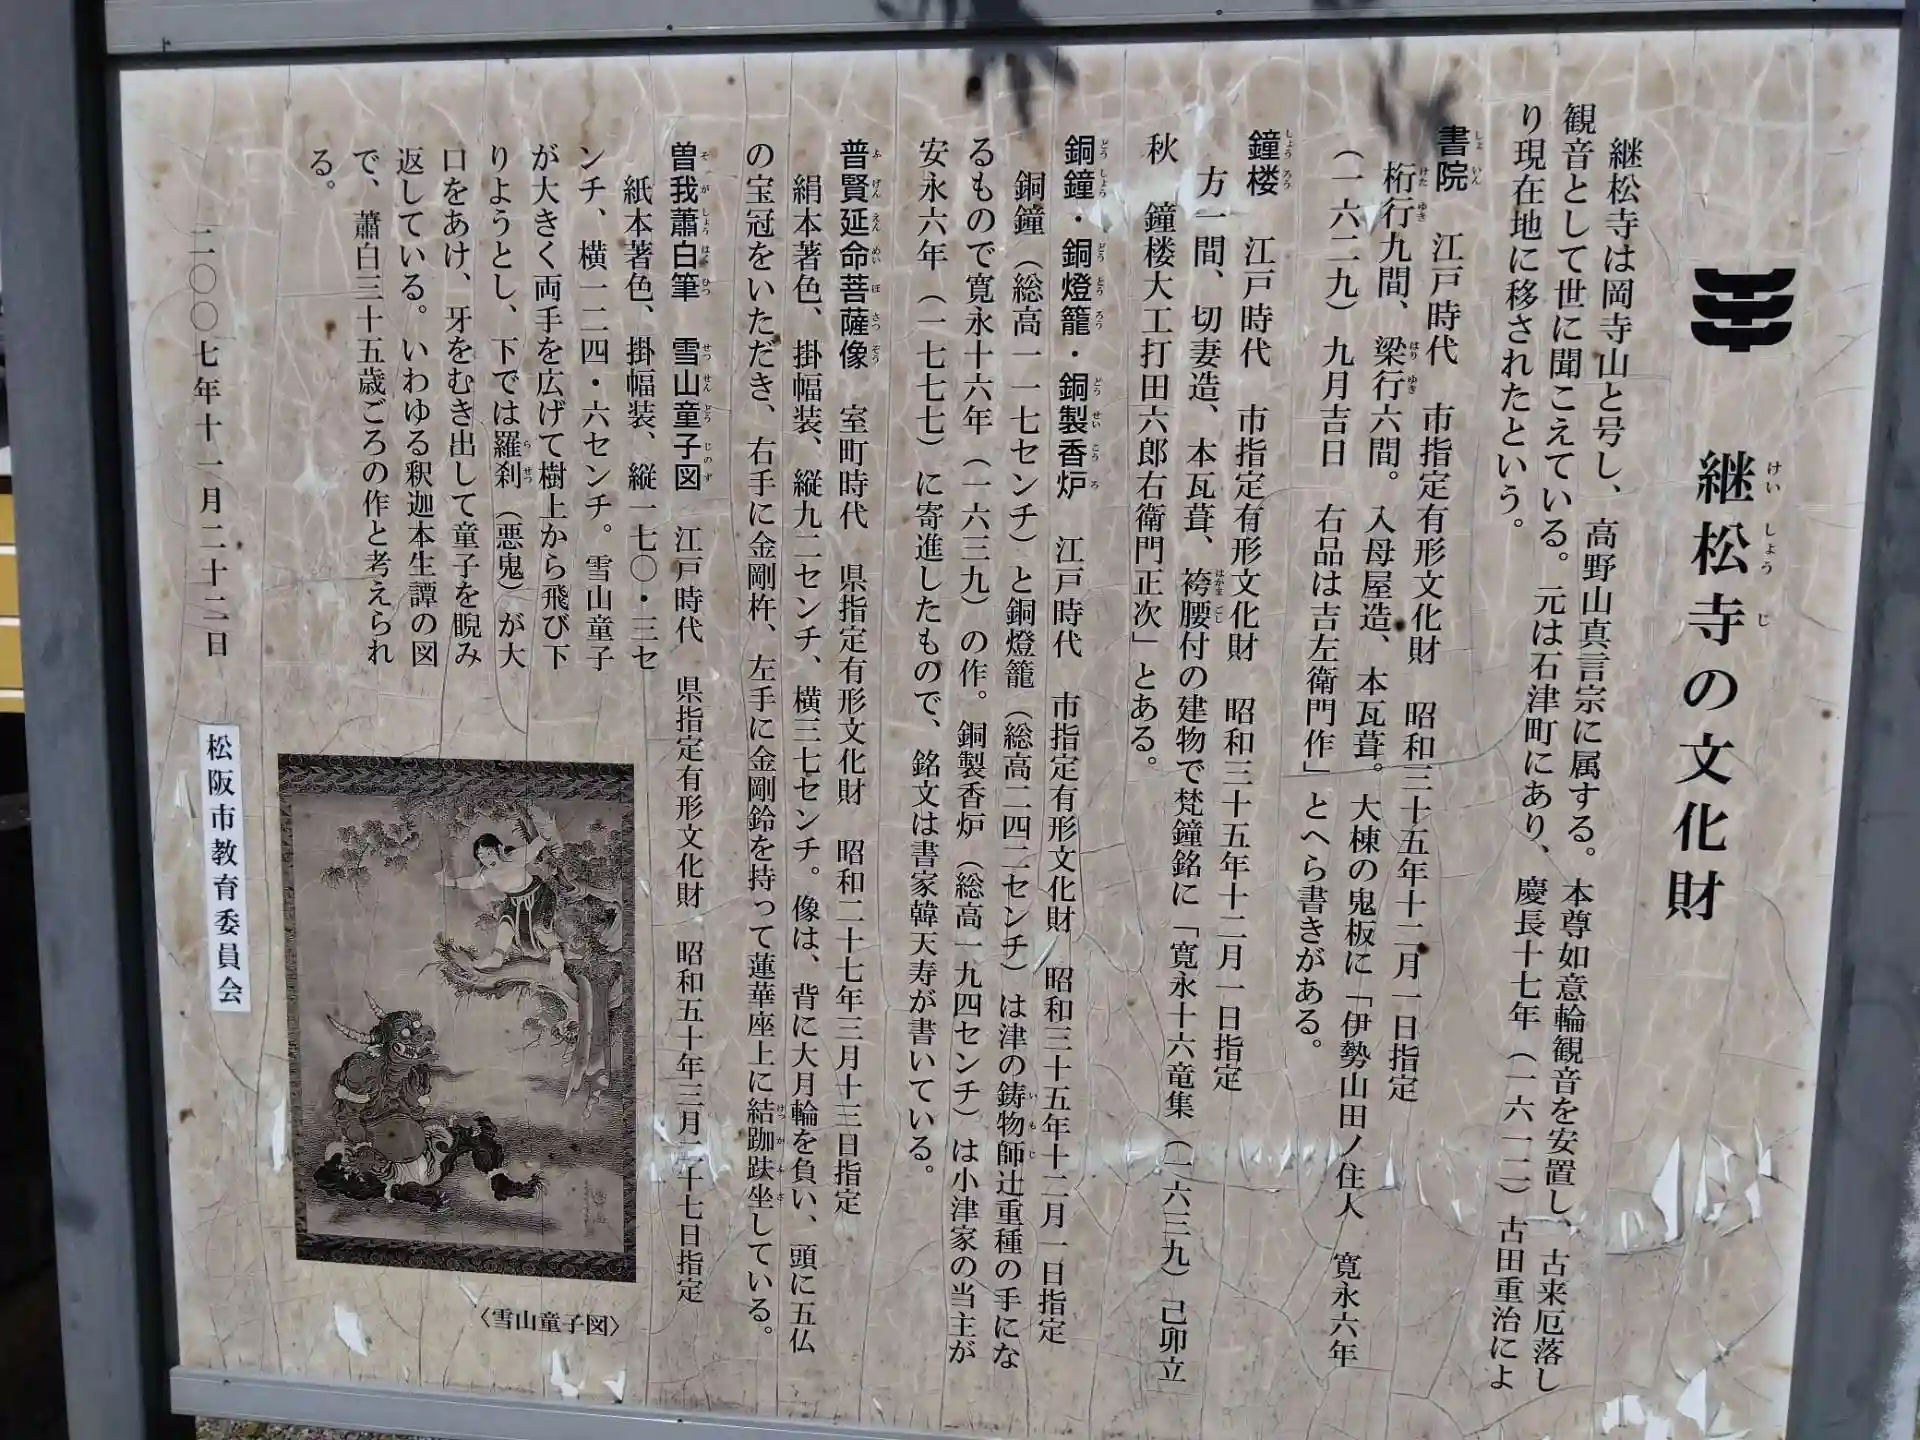 継松寺の文化財
けいしょうじ
継松寺は岡寺山と号し、高野山真言宗に属する。本尊如意輪観音を安置し、古来厄落し
観音として世に聞こえている。元は石津町にあり、慶長十七年(一六一二)古田重治によ
り現在地に移されたという。
書院 江戸時代 市指定有形文化財 昭和三十五年十二月一日指定
しょいん
桁行九間、梁行六間。入母屋造、本瓦葺。大棟の鬼板に「伊勢山田ノ住人 寛永六年
けたゆき はりゆき
(一六二九)九月吉日 右品は吉左衛門作」とへら書きがある。
鐘楼 江戸時代 市指定有形文化財 昭和三十五年十二月一日指定
しょうろう
方一間、切妻造、本瓦葺、袴腰付の建物で梵鐘銘に「寛永十六竜集(一六三九)己卯立
はかまごし
秋 鐘楼大工打田六郎右衛門正次」とある。
銅鐘・銅燈籠・銅製香炉 江戸時代 市指定有形文化財 昭和三十五年十二月一日指定
どうしょう どうどうろう どうせいこうろ
銅鐘(総高一一七センチ)と銅燈籠(総高二四二センチ)は津の鋳物師辻重種の手にな
いもじ
るもので寛永十六年(一六三九)の作。銅製香炉(総高一九四センチ)は小津家の当主が
安永六年(一七七七)に寄進したもので、銘文は書家韓天寿が書いている。
普賢延命菩薩像 室町時代 県指定有形文化財 昭和二十七年三月十三日指定
ふげんえんめいぼさつぞう
絹本著色、掛幅装、縦九二センチ、横三七センチ。像は、背に大月輪を負い、頭に五仏
の宝冠をいただき、右手に金剛杵、左手に金剛鈴を持って蓮華座上に結跏趺坐している。
けつかふざ
曽我蕭白筆 雪山童子図 江戸時代 県指定有形文化財 昭和五十年三月二十七日指定
そがしょうはくひつ せつせんどうじのず
紙本著色、掛幅装、縦一七〇・三セ
ンチ、横一二四・六センチ。雪山童子
が大きく両手を広げて樹上から飛び下
りようとし、下では羅刹(悪鬼)が大
らせつ
口をあけ、牙をむき出して童子を睨み
返している。いわゆる釈迦本生譚の図
で、蕭白三十五歳ごろの作と考えられ
る。
二〇〇七年十一月二十二日
松阪市教育委員会
〈雪山童子図〉